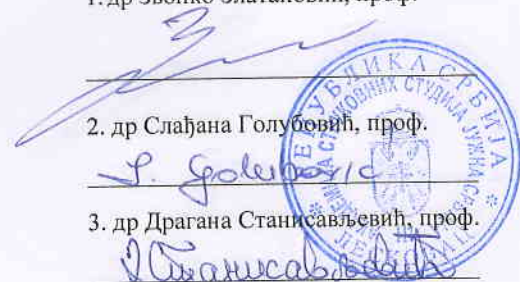 1. др Звонко Златановић, проф.
2. др Слађана Голубовић, проф.
S. Golubović
3. др Драгана Станисављевић, проф.
Д Станисављевић
РЕПУБЛИКА СРБИЈА
СТРУКОВНИХ СТУДИЈА ЈУЖНА